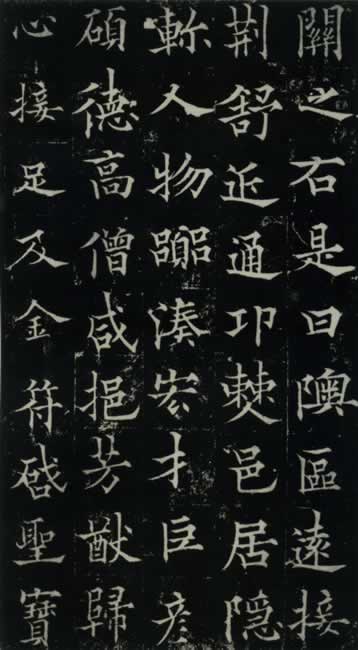 關之右是曰隩區遠接
荆舒近通卭僰邑居隱
軫人物囂湊宏才巨彦
碩德高僧咸挹芳猷歸
心接足及金符啓聖寶